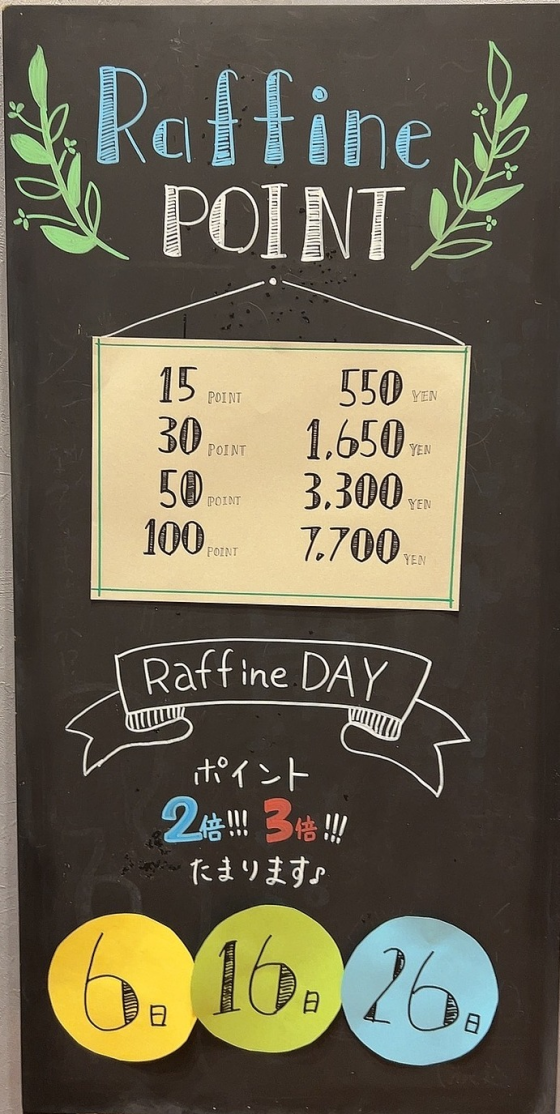 Raffine
POINT
15 POINT 550 YEN
30 POINT 1,650 YEN
50 POINT 3,300 YEN
100 POINT 7,700 YEN
Raffine DAY
ポイント
2倍!!! 3倍!!!
たまります♪
6日 16日 26日